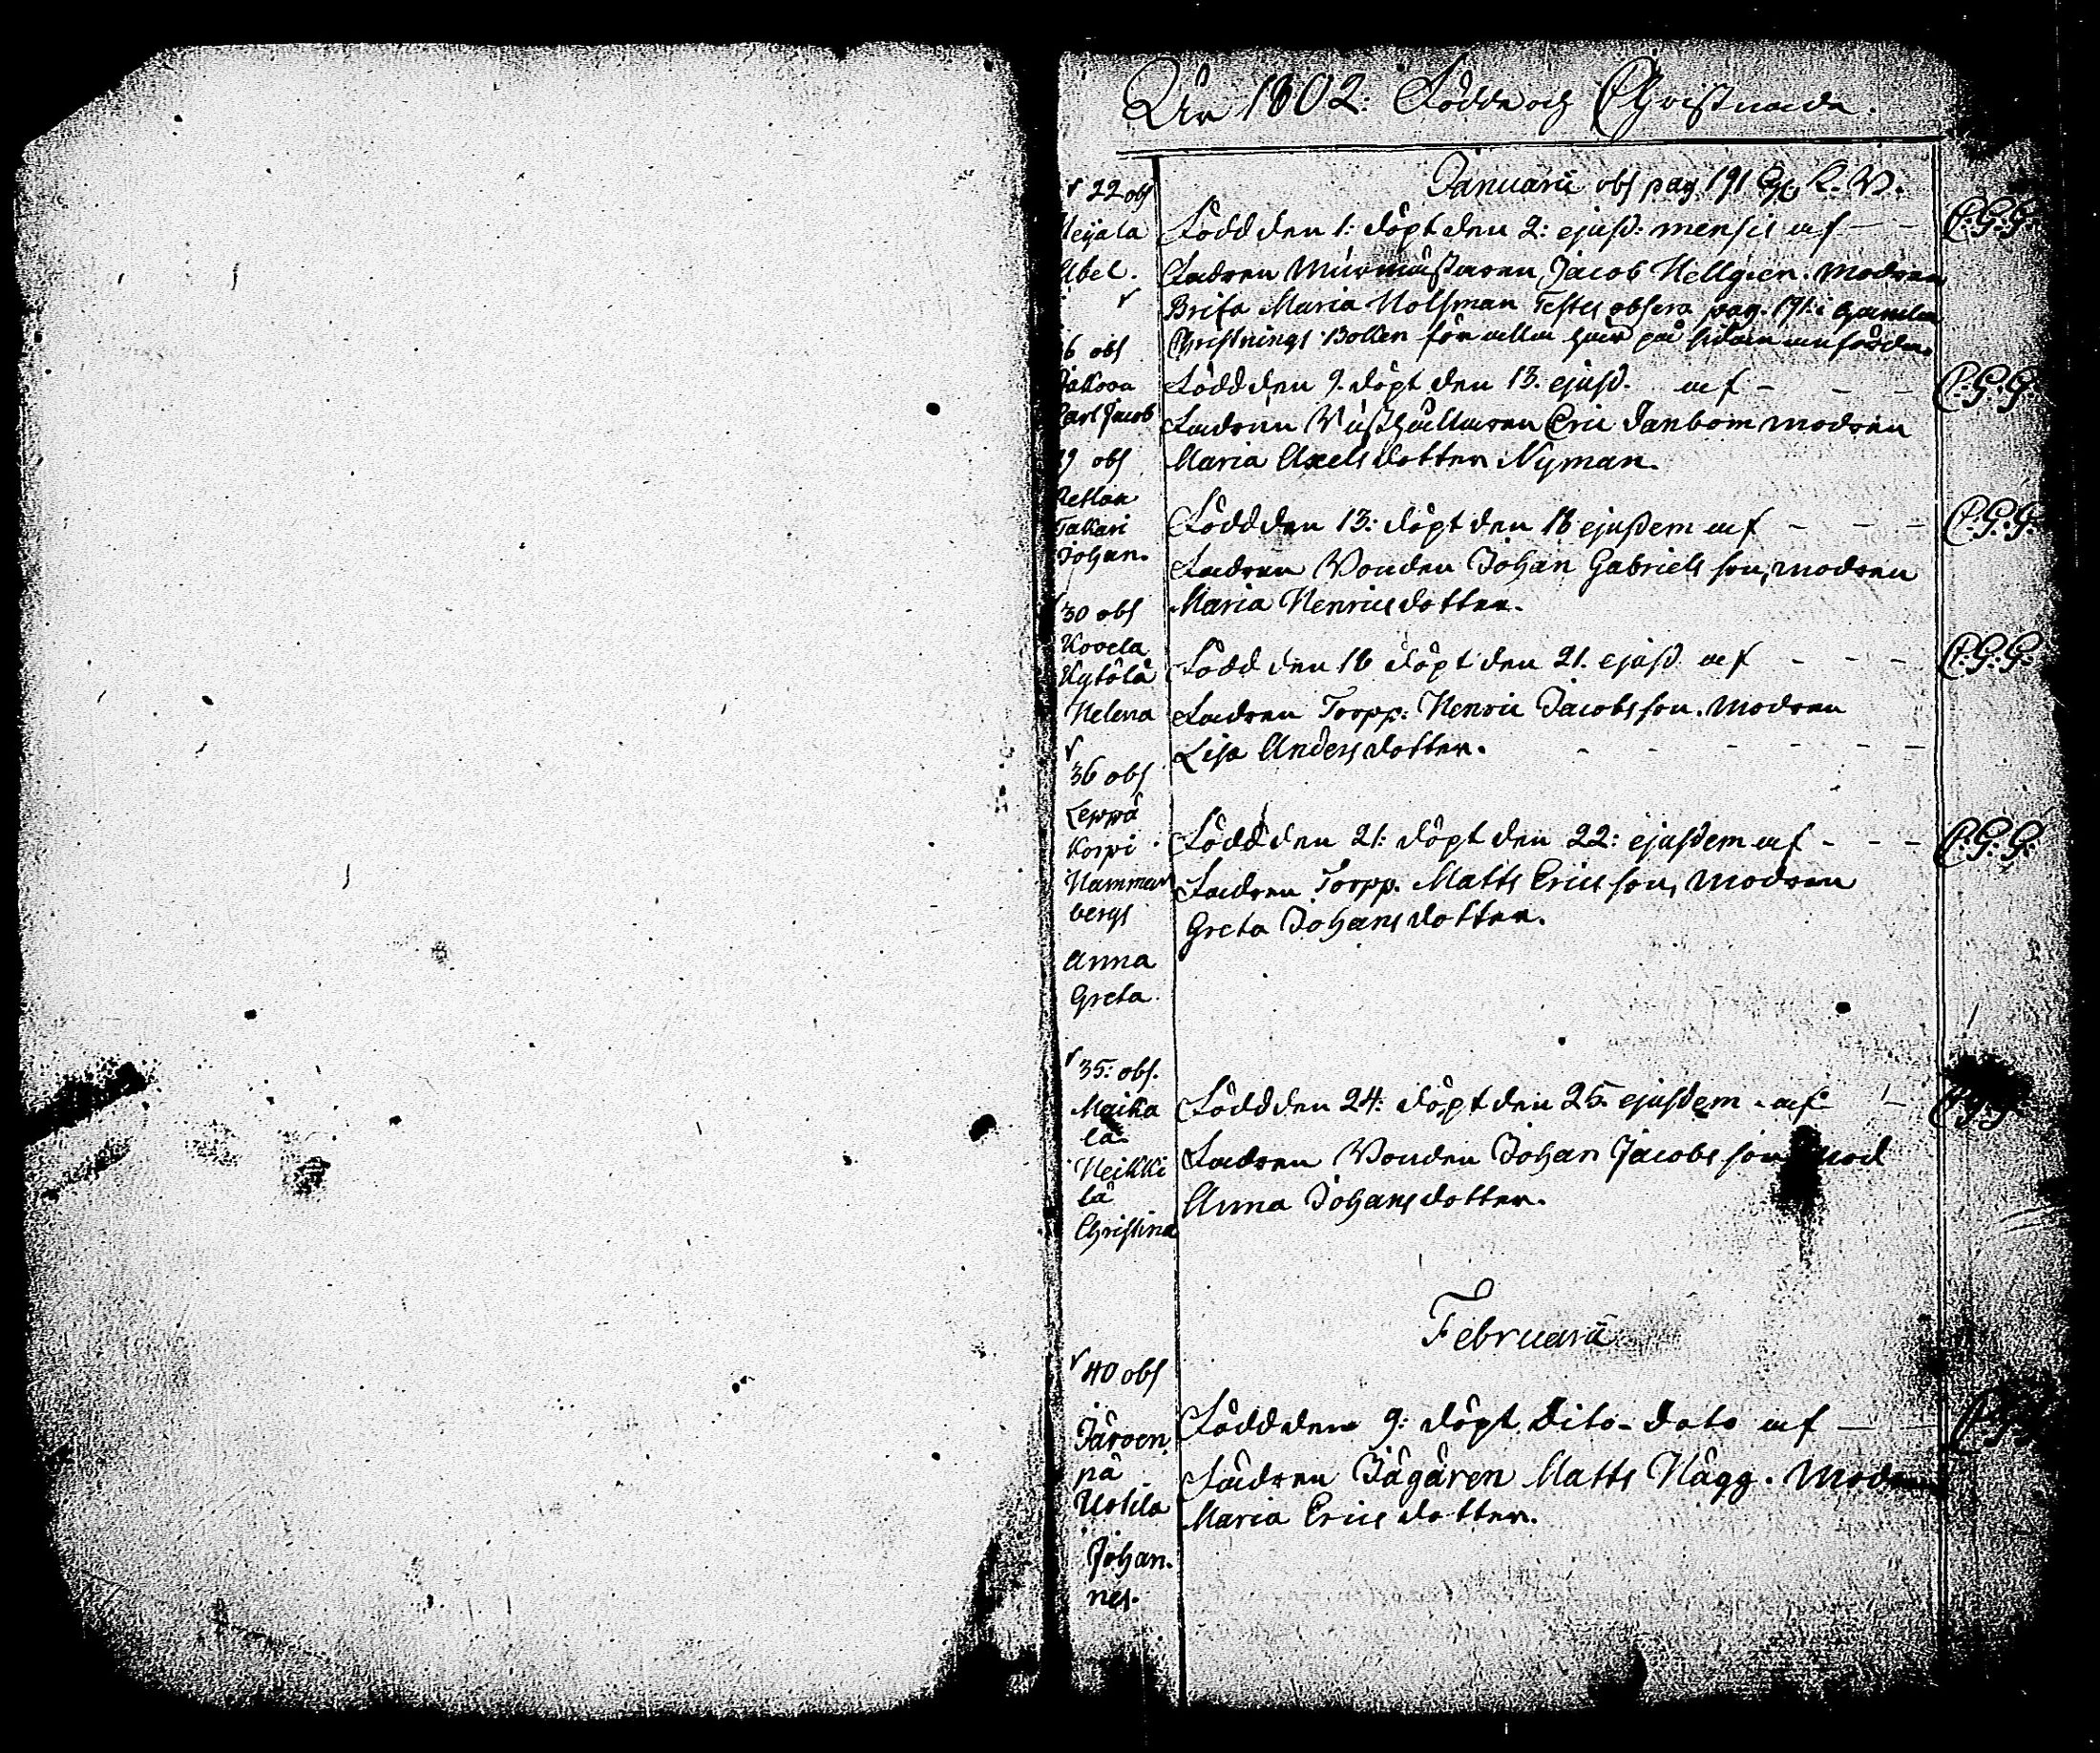 År 1802: Födde och Christnade.
Januarii obs pag 191
22 obs
Heijala
Abel.
Född den 1: döpt den 2: ejusd: mensis af — — C.G.G.
Fadren Murmästaren Jacob Hellgren. modren
Brita Maria Holsman Testes observa pag. 191: i gamla
Christnings Boken för alla här på sidan anförde.
6 obs
Jakova
Carl Jacob
Född den 9. döpt den 13. ejusd. af - - - C.G.G.
Fadren Eric Janbom modren
Maria Axels dotter Nyman.
29 obs
Takari
Johan.
Född den 13: döpt den 18 ejusdem af - - - C.G.G.
Fadren Bonden Johan Gabriels son, modren
Maria Henrics dotter.
30 obs
Kovela
Kytölä
Helena
Född den 16 döpt den 21. ejusd. af - - - C.G.G.
Fadren Torpp. Henric Jacobs son. modren
Lisa Anders dotter. - - - - - -
36 obs
Leppä
Korpi
Hammar
bergs
Anna
Greta
Född den 21: döpt den 22: ejusdem af - - - C.G.G.
Fadren Torpp. Matts Erics son, modren
Greta Johans dotter.
35: obs.
Maika
la
Heikki
lä
Christina
Född den 24: döpt den 25. ejusdem af — C.G.G.
Fadren Bonden Johan Jacobs son mod
Anna Johans dotter.
Februarii
40 obs
Järven
pä
Uotila
Johan-
nes.
Född den 9: döpt Dito-Dato af —
Fadren Jägären Matts Hägg. Modren
Maria Erics dotter.